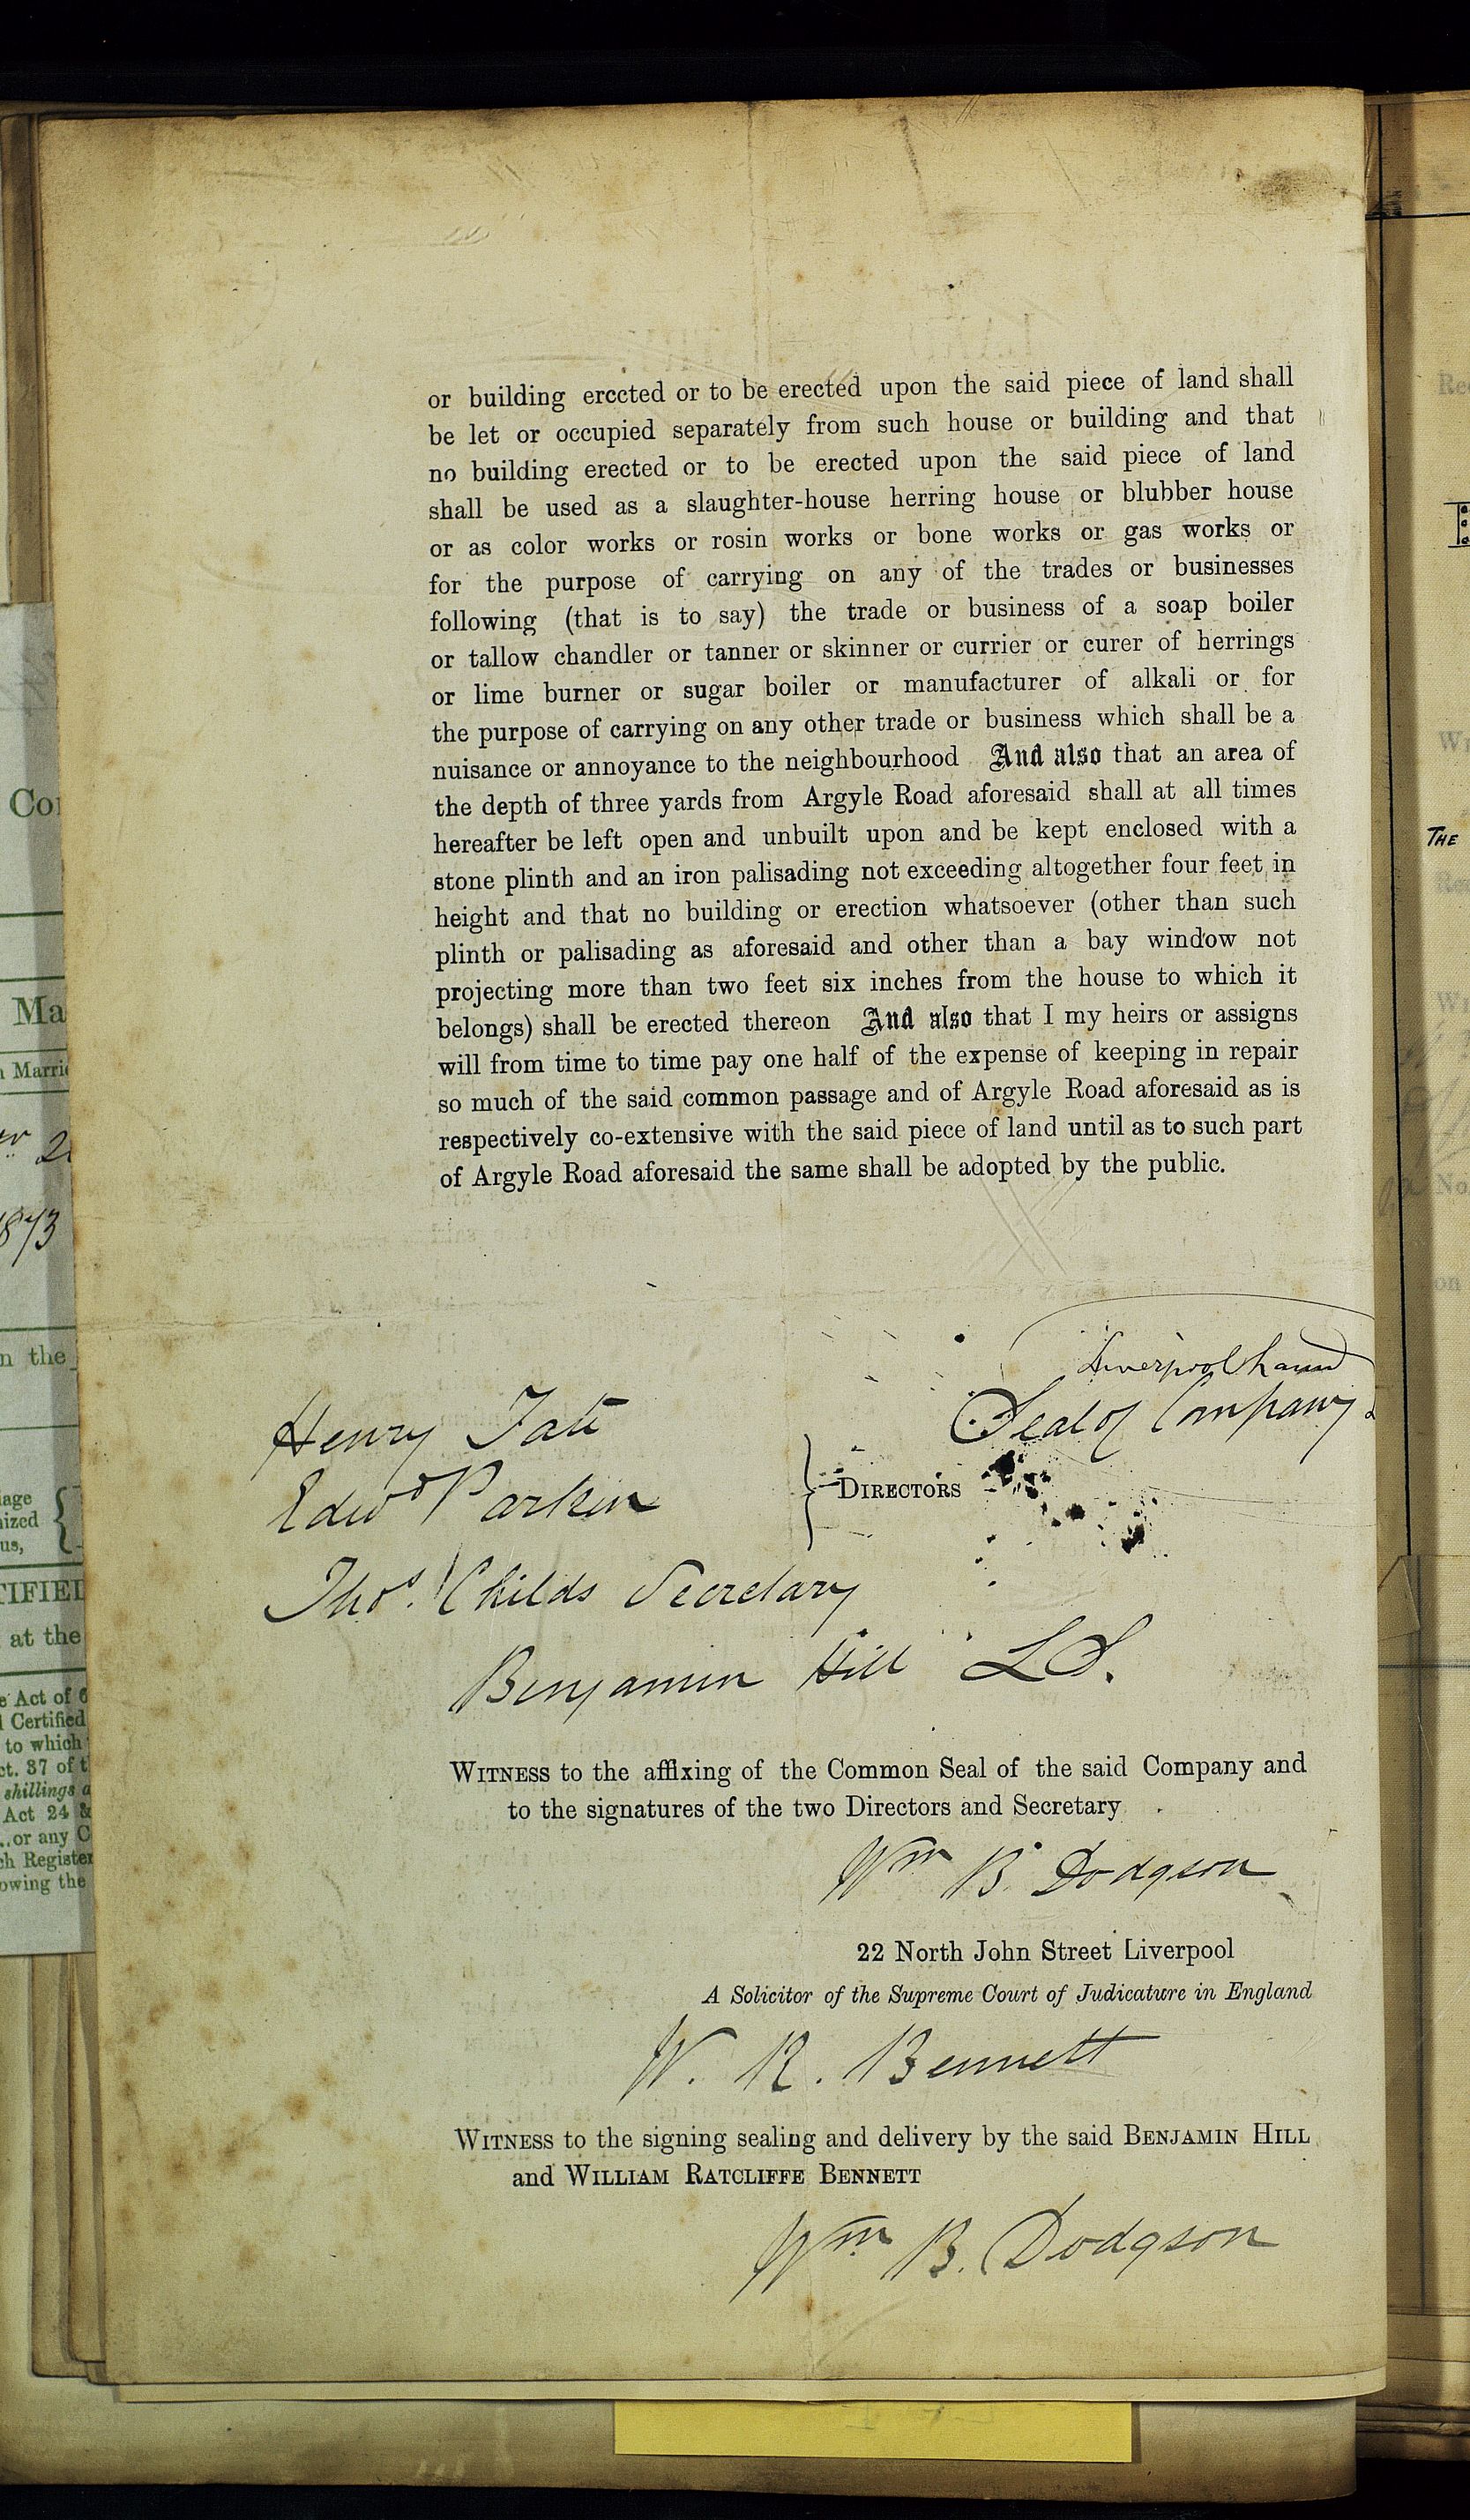 or building erected or to be erected upon the said piece of land shall
be let or occupied separately from such house or building and that
no building erected or to be erected upon the said piece of land
shall be used as a slaughter-house herring house or blubber house
or as color works or rosin works or bone works or gas works or
for the purpose of carrying on any of the trades or businesses
following (that is to say) the trade or business of a soap boiler
or tallow chandler or tanner or skinner or currier or curer of herrings
or lime burner or sugar boiler or manufacturer of alkali or for
the purpose of carrying on any other trade or business which shall be a
nuisance or annoyance to the neighbourhood And also that an area of
the depth of three yards from Argyle Road aforesaid shall at all times
hereafter be left open and unbuilt upon and be kept enclosed with a
stone plinth and an iron palisading not exceeding altogether four feet in
height and that no building or erection whatsoever (other than such
plinth or palisading as aforesaid and other than a bay window not
projecting more than two feet six inches from the house to which it
belongs) shall be erected thereon And also that I my heirs or assigns
will from time to time pay one half of the expense of keeping in repair
so much of the said common passage and of Argyle Road aforesaid as is
respectively co-extensive with the said piece of land until as to such part
of Argyle Road aforesaid the same shall be adopted by the public.
Liverpool Land
Seal of Company
Henry Tate
Edwd Parker
DIRECTORS
Thos. Childs Secretary
Benjamin Hill LS.
WITNESS to the affixing of the Common Seal of the said Company and
to the signatures of the two Directors and Secretary
Wm B. Dodgson
22 North John Street Liverpool
A Solicitor of the Supreme Court of Judicature in England
W. R. Bennett
WITNESS to the signing sealing and delivery by the said BENJAMIN HILL
and WILLIAM RATCLIFFE BENNETT
Wm B. Dodgson
Ma
1873
n the
at the
Act of
Certified
to which
shillings
Act 24 &
or any
owing the
THE